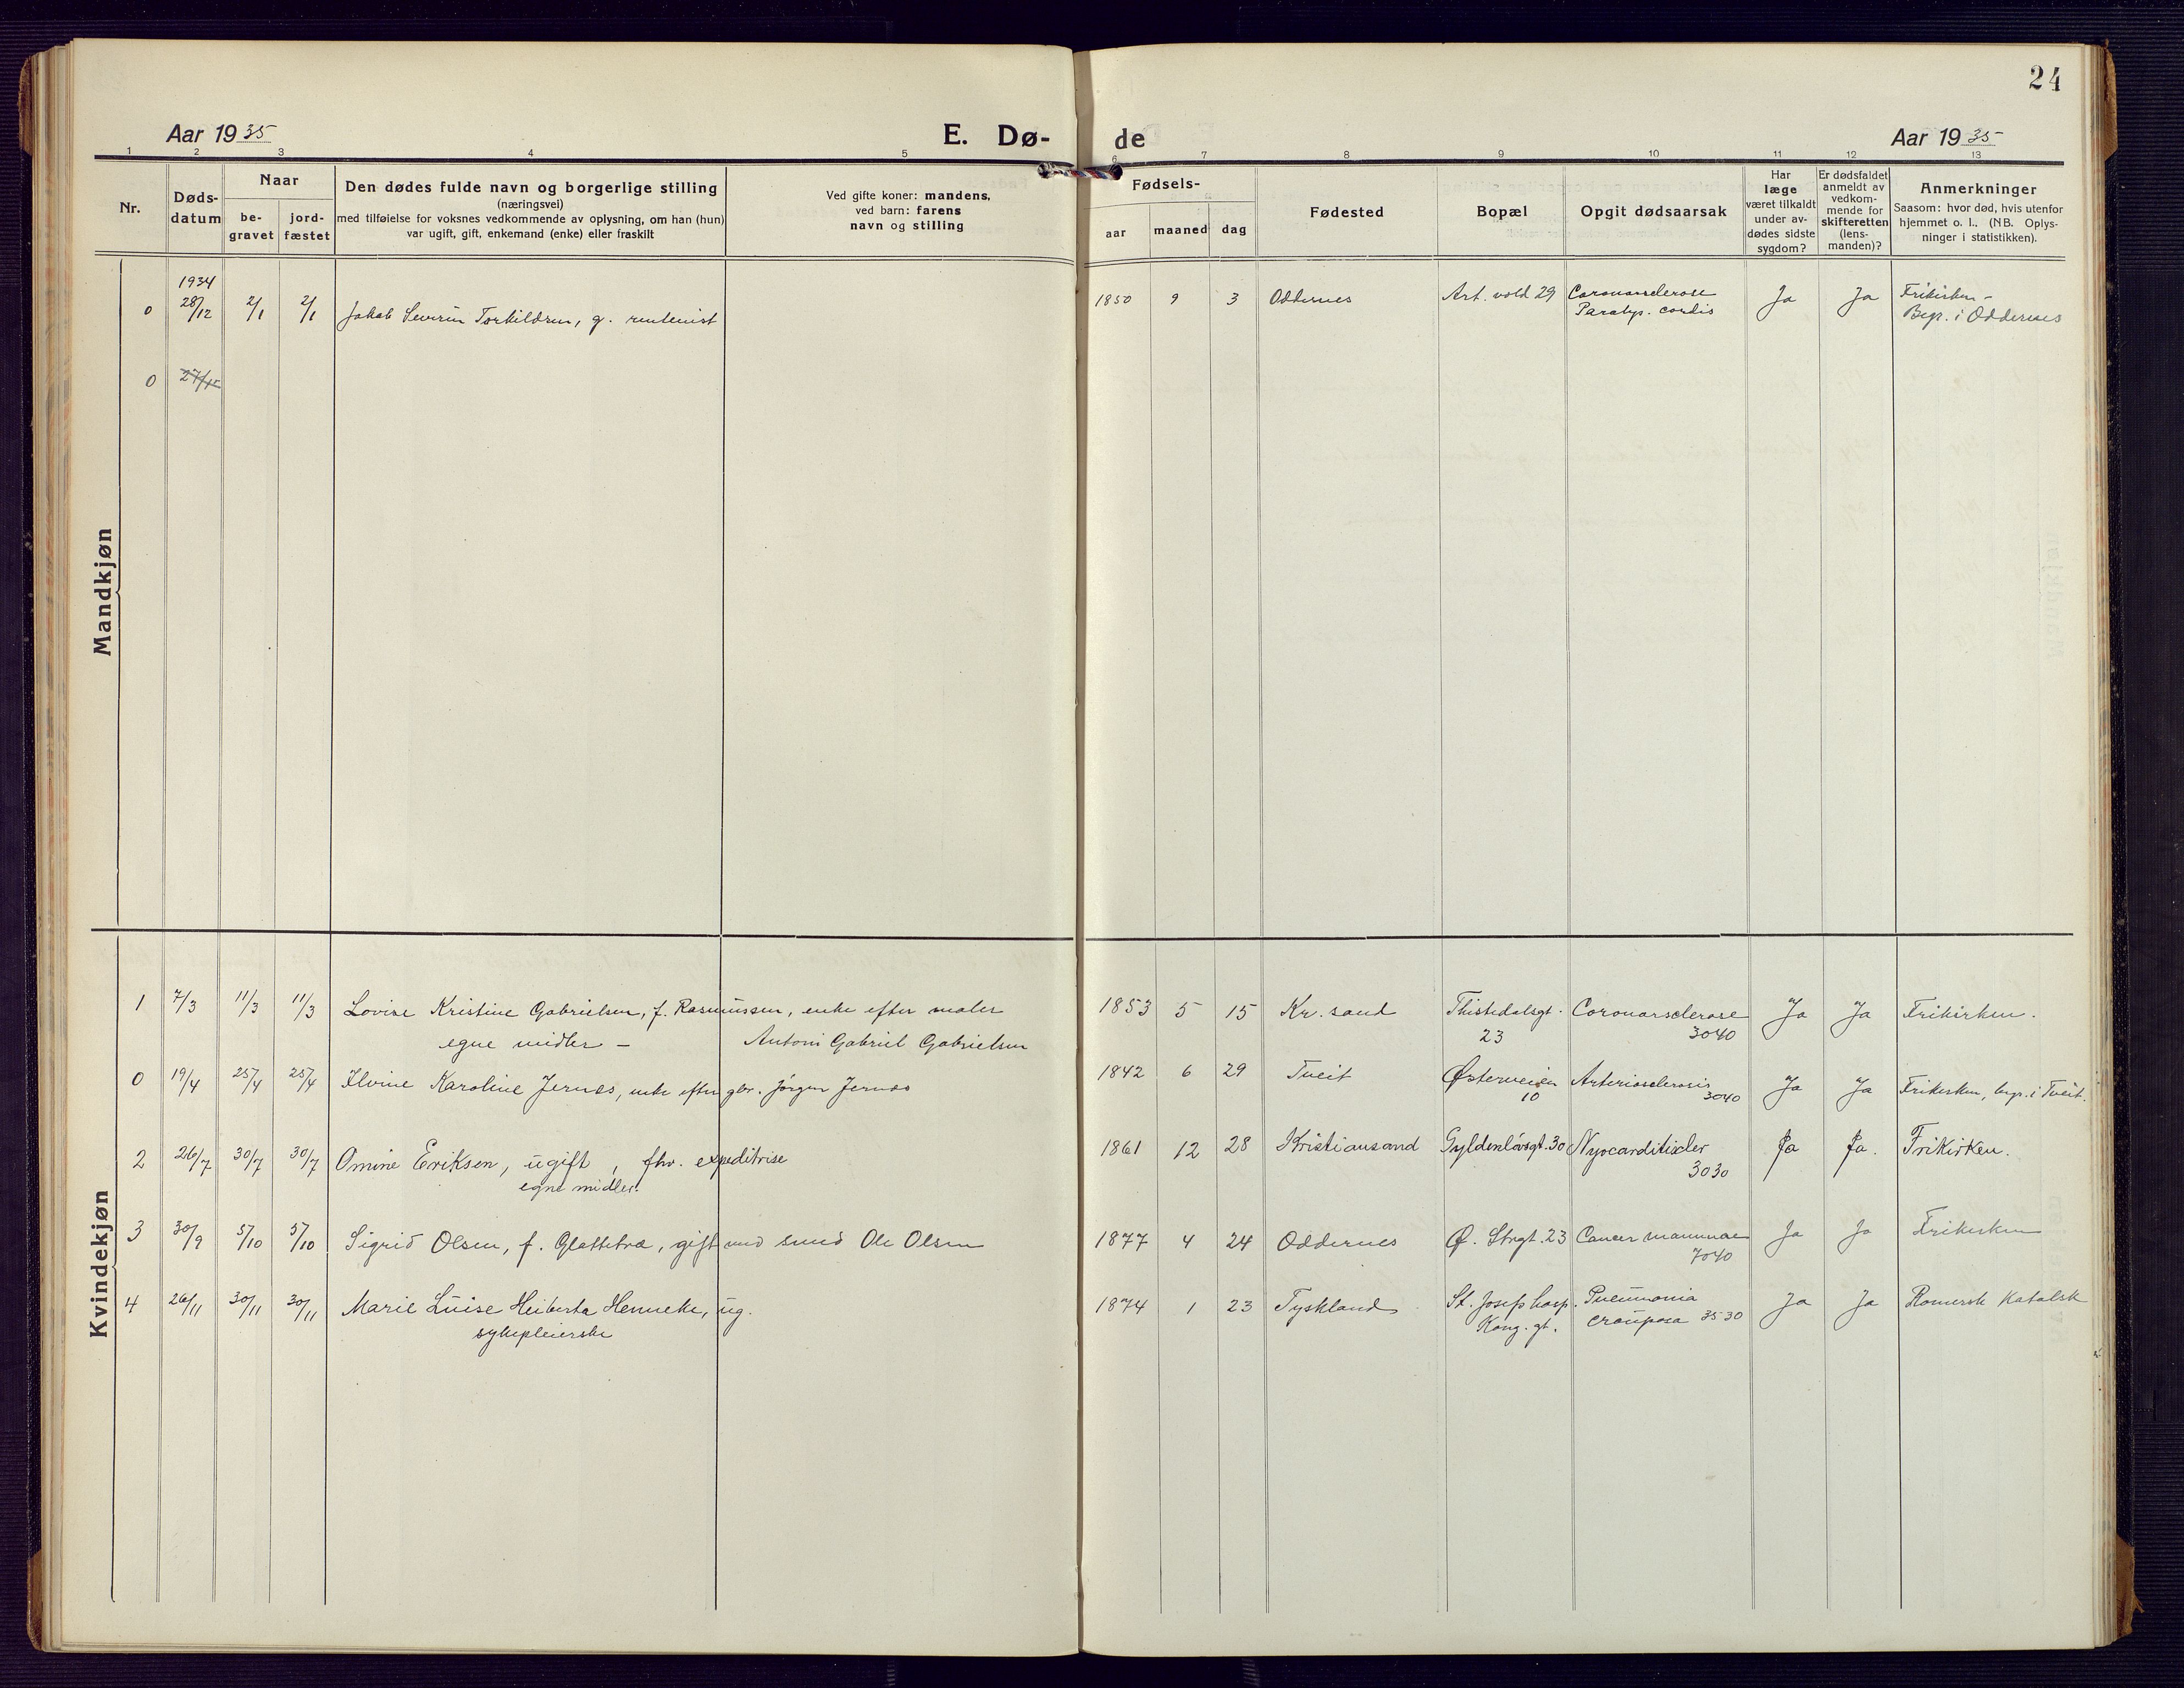 24
Aar 1935
E. Dø-
de
Aar 1935
1 2 3 4 5 6 7 8 9 10 11 12 13
Nr.
Døds-
datum
Naar
be-
gravet
jord-
fæstet
Den dødes fulde navn og borgerlige stilling
(næringsvei)
med tilføielse for voksnes vedkommende av oplysning, om han (hun)
var ugift, gift, enkemand (enke) eller fraskilt
Ved gifte koner: mandens,
ved barn: farens
navn og stilling
Fødsels-
aar maaned dag
Fødested
Bopæl
Opgit dødsaarsak
Har
læge
været tilkaldt
under av-
dødes sidste
sygdom?
Er dødsfaldet
anmeldt av
vedkom-
mende for
skifteretten
(lens-
manden)?
Anmerkninger
Saasom: hvor død, hvis utenfor
hjemmet o. l.. (NB. Oplys-
ninger i statistikken).
Mandkjøn
1934
0 28/12 2/1 2/1 Jakob Severin Torkildsen, g. rentenist 1850 9 3 Oddernes Art. vold 29 Coronarsclerose Ja Ja Frikirken -
Paralys. cordis Begr. i Oddernes
0 27/12
Kvindekjøn
1 7/3 11/3 11/3 Lovise Kristine Gabrielsen, f. Rasmussen, enke efter maler 1853 5 15 Kr.sand Thistedalsgt. Coronarsclerose Ja Ja Frikirken.
egne midler - Antoni Gabriel Gabrielsen 23 3040
0 19/4 25/4 25/4 Elvine Karoline Jernes, enke efter gbr. Jørgen Jernes 1842 6 29 Tveit Østerveien Arteriosclerosis Ja Ja Frikirken, begr. i Tveit.
10 3040
2 26/7 30/7 30/7 Omine Eriksen, ugift, fhv. expeditrise 1861 12 28 Kristiansand Gyldenløvsgt. 30 Ja Ja. Frikirken.
egne midler. 3030
3 30/9 5/10 5/10 Sigrid Olsen, f. Glattetra, gift med smed Ole Olsen 1877 4 24 Oddernes Ø. Strgt. 23 Cancer mammae Ja Ja Frikirken
7040
4 26/11 30/11 30/11 Marie Luise Heiberta Henneke, ug. 1874 1 23 Tyskland St. Josefs hosp. Pneumonia Ja Ja Romersk Katolsk
sykepleierske Kong. gt. crouposa 3530